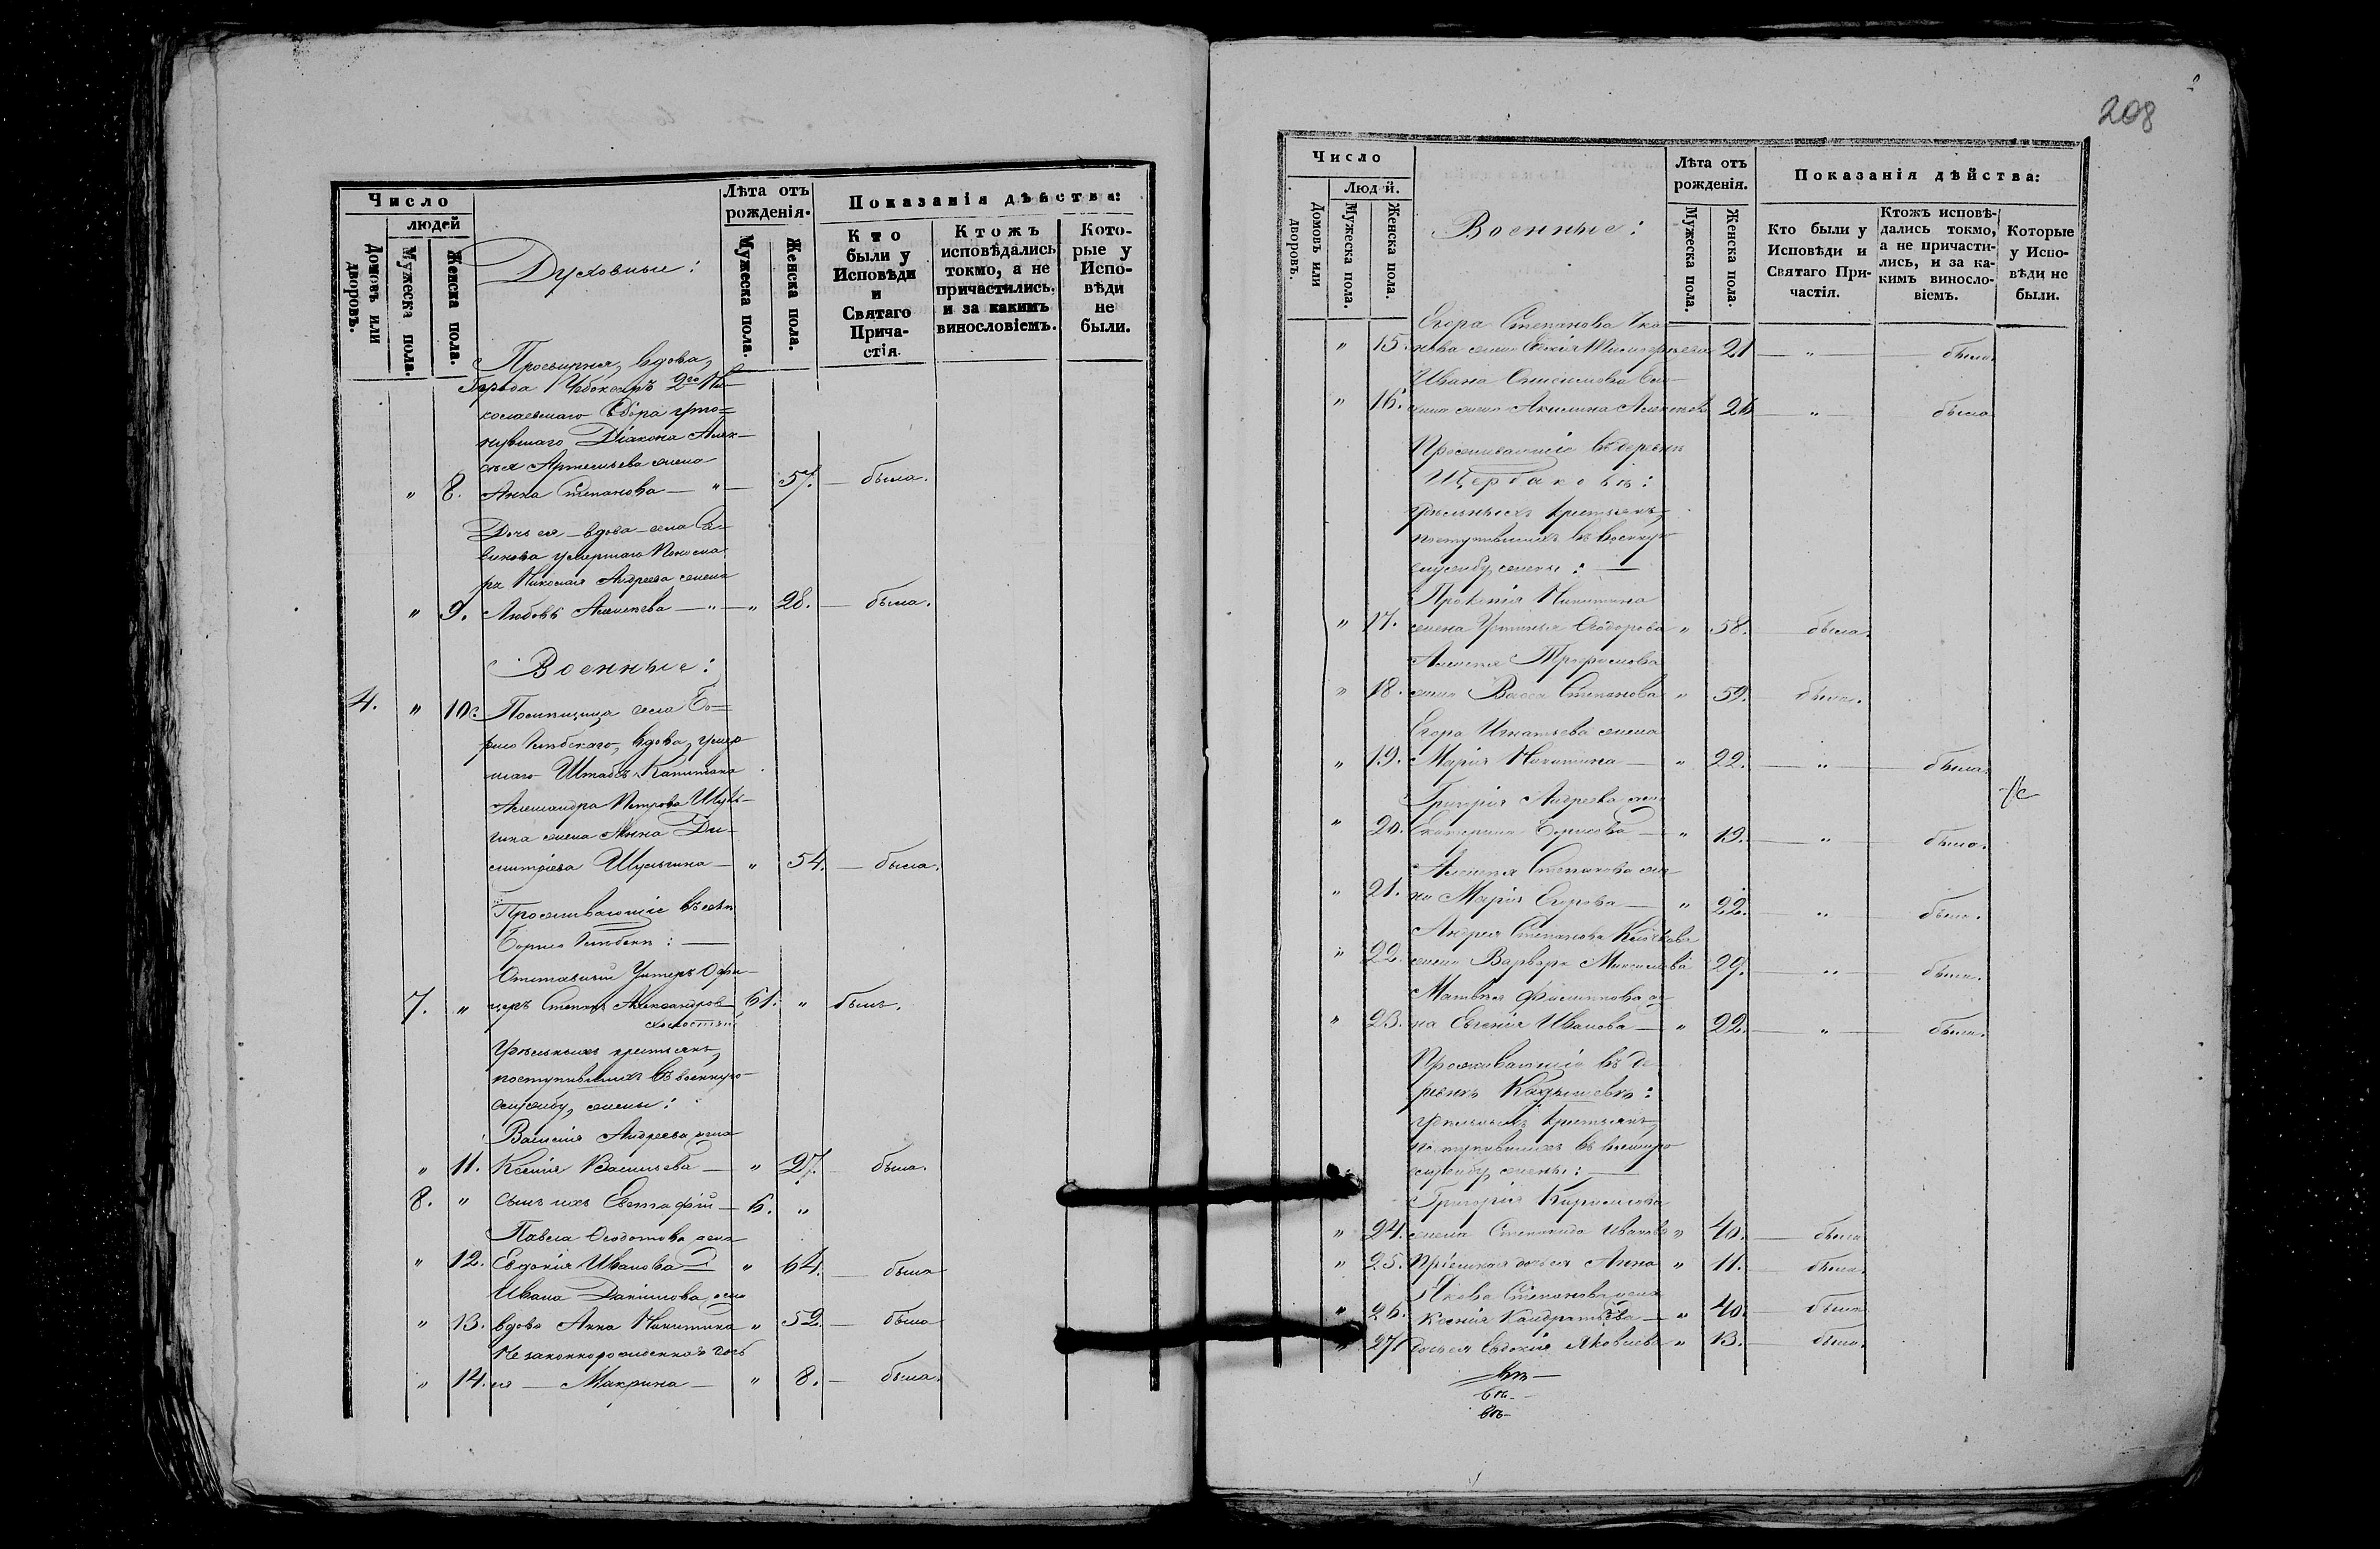 Число
людей
Домовъ или дворовъ.
Мужеска пола.
Женска пола.
Духовныи:
Лѣта отъ
рожденія.
Мужеска пола.
Женска пола.
Показанія дѣйства:
Кто
были у
Исповѣди
и
Святаго
Прича-
стія.
Ктожъ
исповѣдались
токмо, а не
причастились,
и за какимъ
винословіемъ.
Кото-
рые у
Испо-
вѣди
не
были.
вдова,
Города Чебоксаръ 2го Ни-
колаевскаго
Діакона Алек-
сѣя Артемьева жена
" 8. Анна Степанова — " — 57. — была.
Дочь ея — вдова — села
умершаго Поно ма
ря Николая Андреева жена
" 9. Любовь Алексѣева — " — " 28. — была.
Военные:
4. " 10. Помѣщица села Бо-
вдова, умер
шаго Штабсъ-Капитана
Александра Петрова Шуль-
гина жена Анна Ди-
митріева Шульгина — " 54. — была.
Проживающіе въ селѣ
Отставный Унтеръ Офи-
7. " церъ Степанъ Александровъ 61. " былъ.
холостый
Удѣльныхъ крестьянъ,
поступившихъ въ военную
службу, жены:
Василія Андреева жена
" 11. Ксенія Васильева — " 27. — была.
8. " Сынъ ихъ Евстафій — 6. "
Павла Ѳедотова жена
" 12. Евдокія Иванова " 64. — была
Ивана Данилова жена
" 13. вдова Анна Никитина " 52. — была
Незаконнорожденная дочь
" 14. ея — Макрина — " 8. — была.
208
Число
Людей.
Домовъ или дворовъ.
Мужеска пола.
Женска пола.
Военные:
Лѣта отъ
рожденія.
Мужеска пола.
Женска пола.
Показанія дѣйства:
Кто были у
Исповѣди и
Святаго При-
частія.
Ктожъ исповѣ-
дались токмо,
а не причасти-
лись, и за ка-
кимъ винносло-
віемъ.
Которые
у Испо-
вѣди не
были.
Егора Степанова
" 15. жена 21 — " — была.
Ивана
" 16. жена Акилина 26 — " — была
Проживающіе въ деревнѣ
Щербаковѣ:
удѣльныхъ крестьянъ,
поступившихъ въ военную
службу, жены: —
Никитина
" 17. жена Устинья Ѳеодорова " 58. — была.
Алексѣя Трофимова
" 18. жена Васса Степанова " 59. — была.
Егора Игнатьева жена
" 19. Марія Никитина — " 22. — " — была.
Григорія Андреева жена
" 20. Екатерина Борисова — " 19. — " — была.
Алексѣя Степанова же-
" 21. на Марія Егорова — " 22. — " — была.
Андрея Степанова
" 22. жена Варвара 29. — " — была.
Матвѣя Филиппова же-
" 23. на Евгенія Иванова — " 22. — " — была.
Проживающіе въ де-
ревнѣ Кадышевѣ:
удѣльныхъ крестьянъ,
поступившихъ въ военную
службу, жены: —
Григорія Кириллова
" 24. жена Степанида Иванова " 40. — была
" 25. Пріемная дочь ея Анна " 11. — была.
Якова Степанова жена
" 26. Ксенія Кандратьева — " 40. — была
" 27. Дочь ея Евдокія Яковлева " 13. — была.